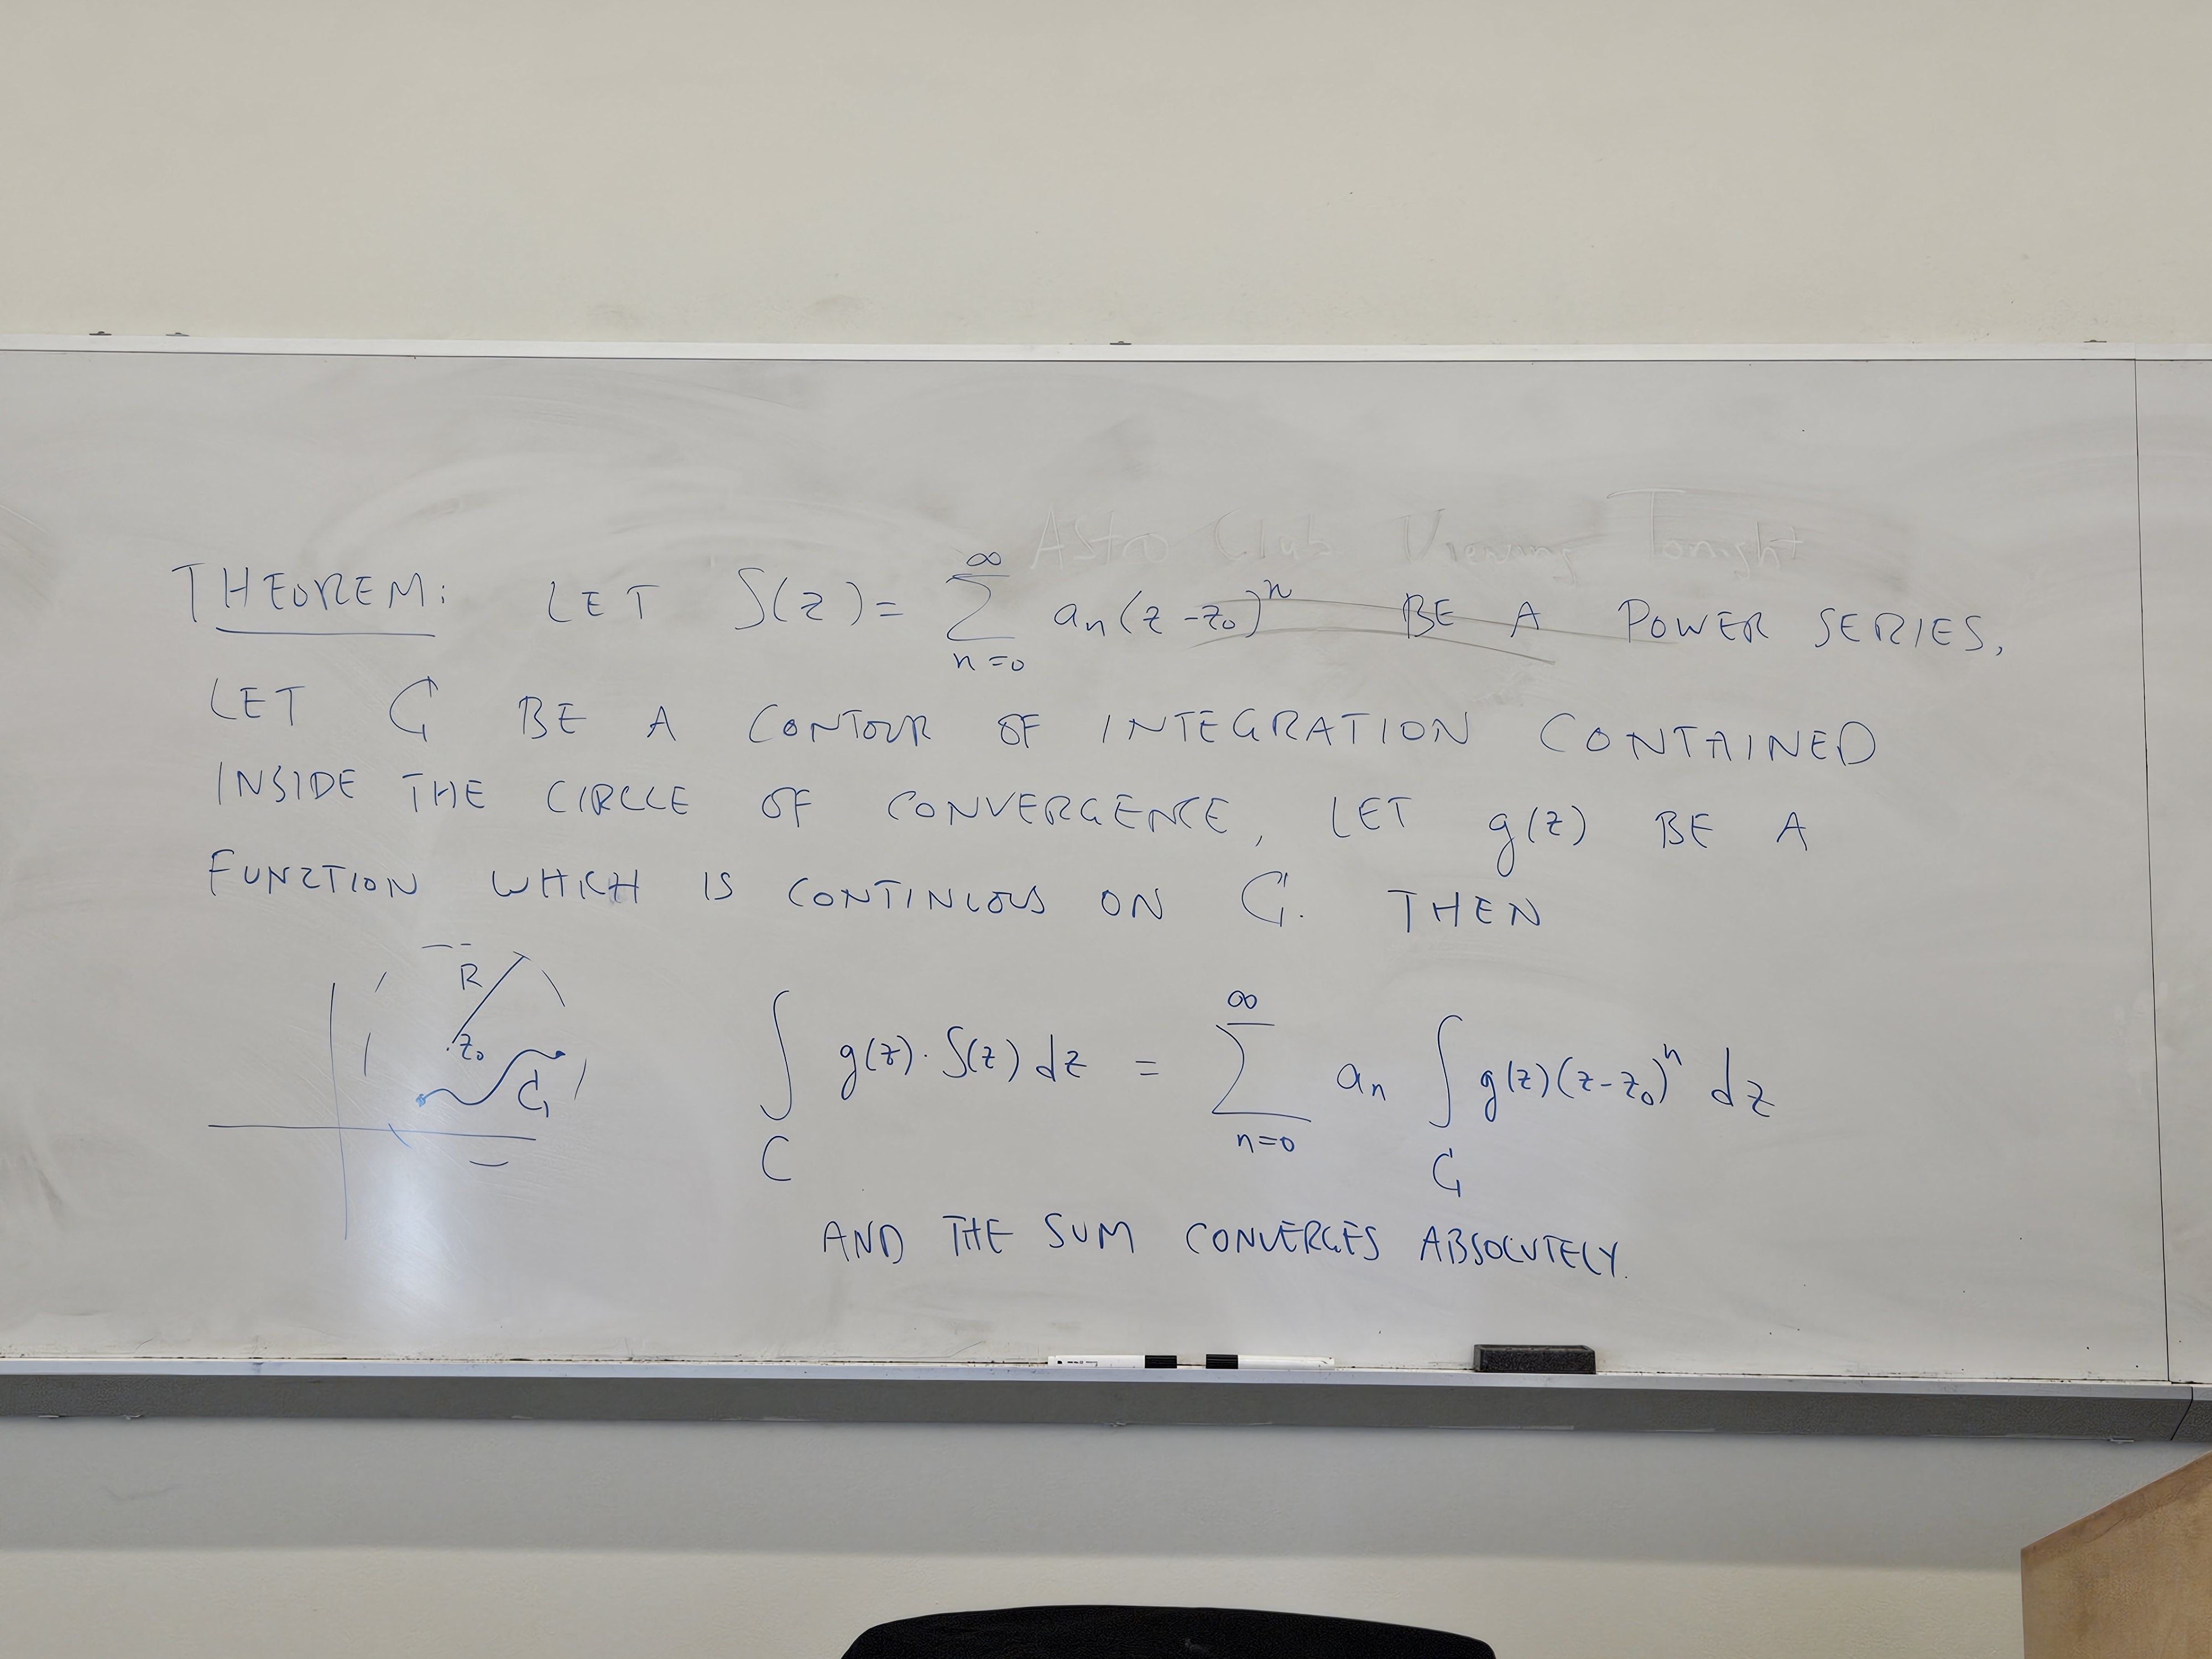 Astro Club Viewing Tonight
THEOREM: LET S(z) = ∞ ∑ n=0 aₙ(z-z₀)ⁿ BE A POWER SERIES,
LET C BE A CONTOUR OF INTEGRATION CONTAINED
INSIDE THE CIRCLE OF CONVERGENCE, LET g(z) BE A
FUNCTION WHICH IS CONTINUOUS ON C. THEN
R
z₀
C
∫ C g(z)·S(z) dz = ∞ ∑ n=0 aₙ ∫ C g(z)(z-z₀)ⁿ dz
AND THE SUM CONVERGES ABSOLUTELY.